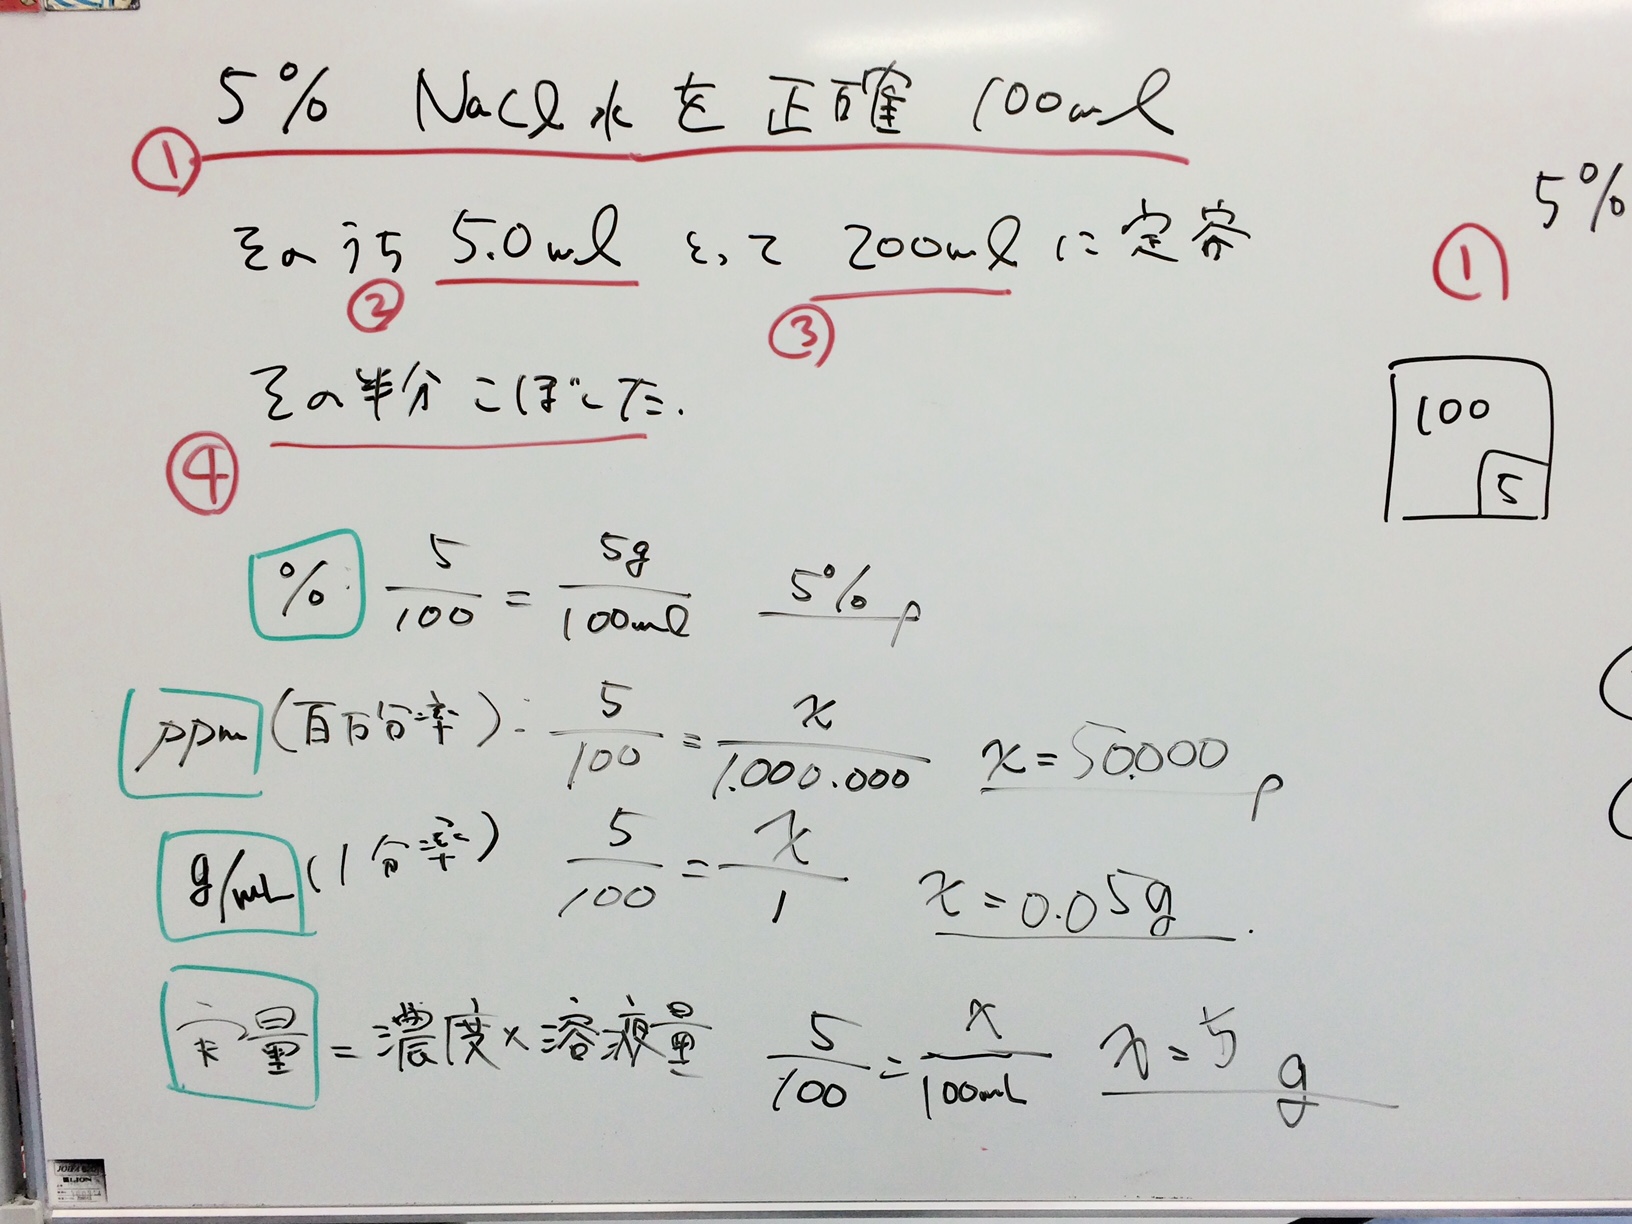 5% NaCl水を正確 100ml
①
そのうち 5.0ml とって 200mlに定容
② ③
その半分こぼした.
④
% 5/100 = 5g/100ml 5%
ppm (百万分率): 5/100 = x/1.000.000 x=50.000
g/mL (1分率) 5/100 = x/1 x=0.05g.
量 = 濃度×溶液量 5/100 = x/100mL x=5g
5%
①
100
5
LION